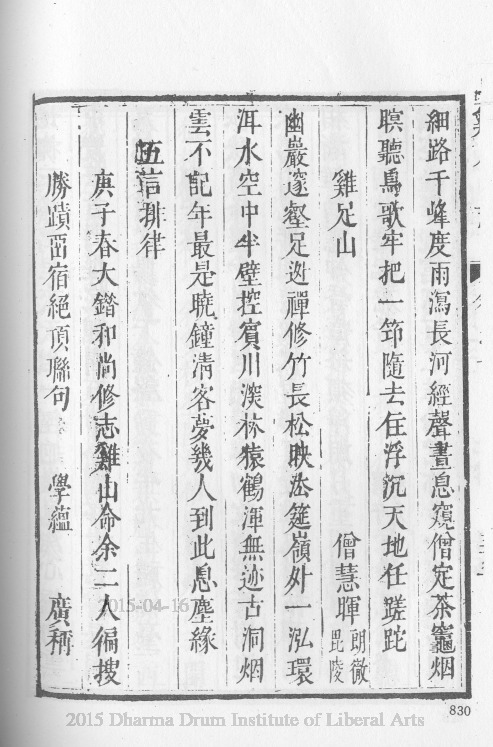 細路千峰度雨瀉長河經聲晝息窺僧定茶竈烟
瞑聽鳥歌牢把一笻隨去住浮沉天地任蹉跎
雞足山
僧慧暉
朗徹
毘陵
幽巖邃壑足逃禪修竹長松映法筵嶺外一泓環
洱水空中半壁控賓川深林猿鶴渾無迹古洞烟
雲不記年最是曉鐘清客夢幾人到此息塵緣
五言排律
庚子春大錯和尚修志雞山命余二人徧搜
勝蹟畱宿絕頂聯句
學蘊
廣稱
830
2015-04-16
2015 Dharma Drum Institute of Liberal Arts